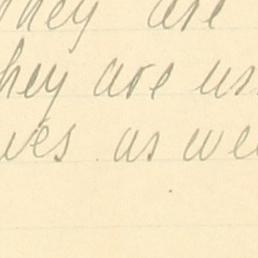 They are
they are us
ves as we